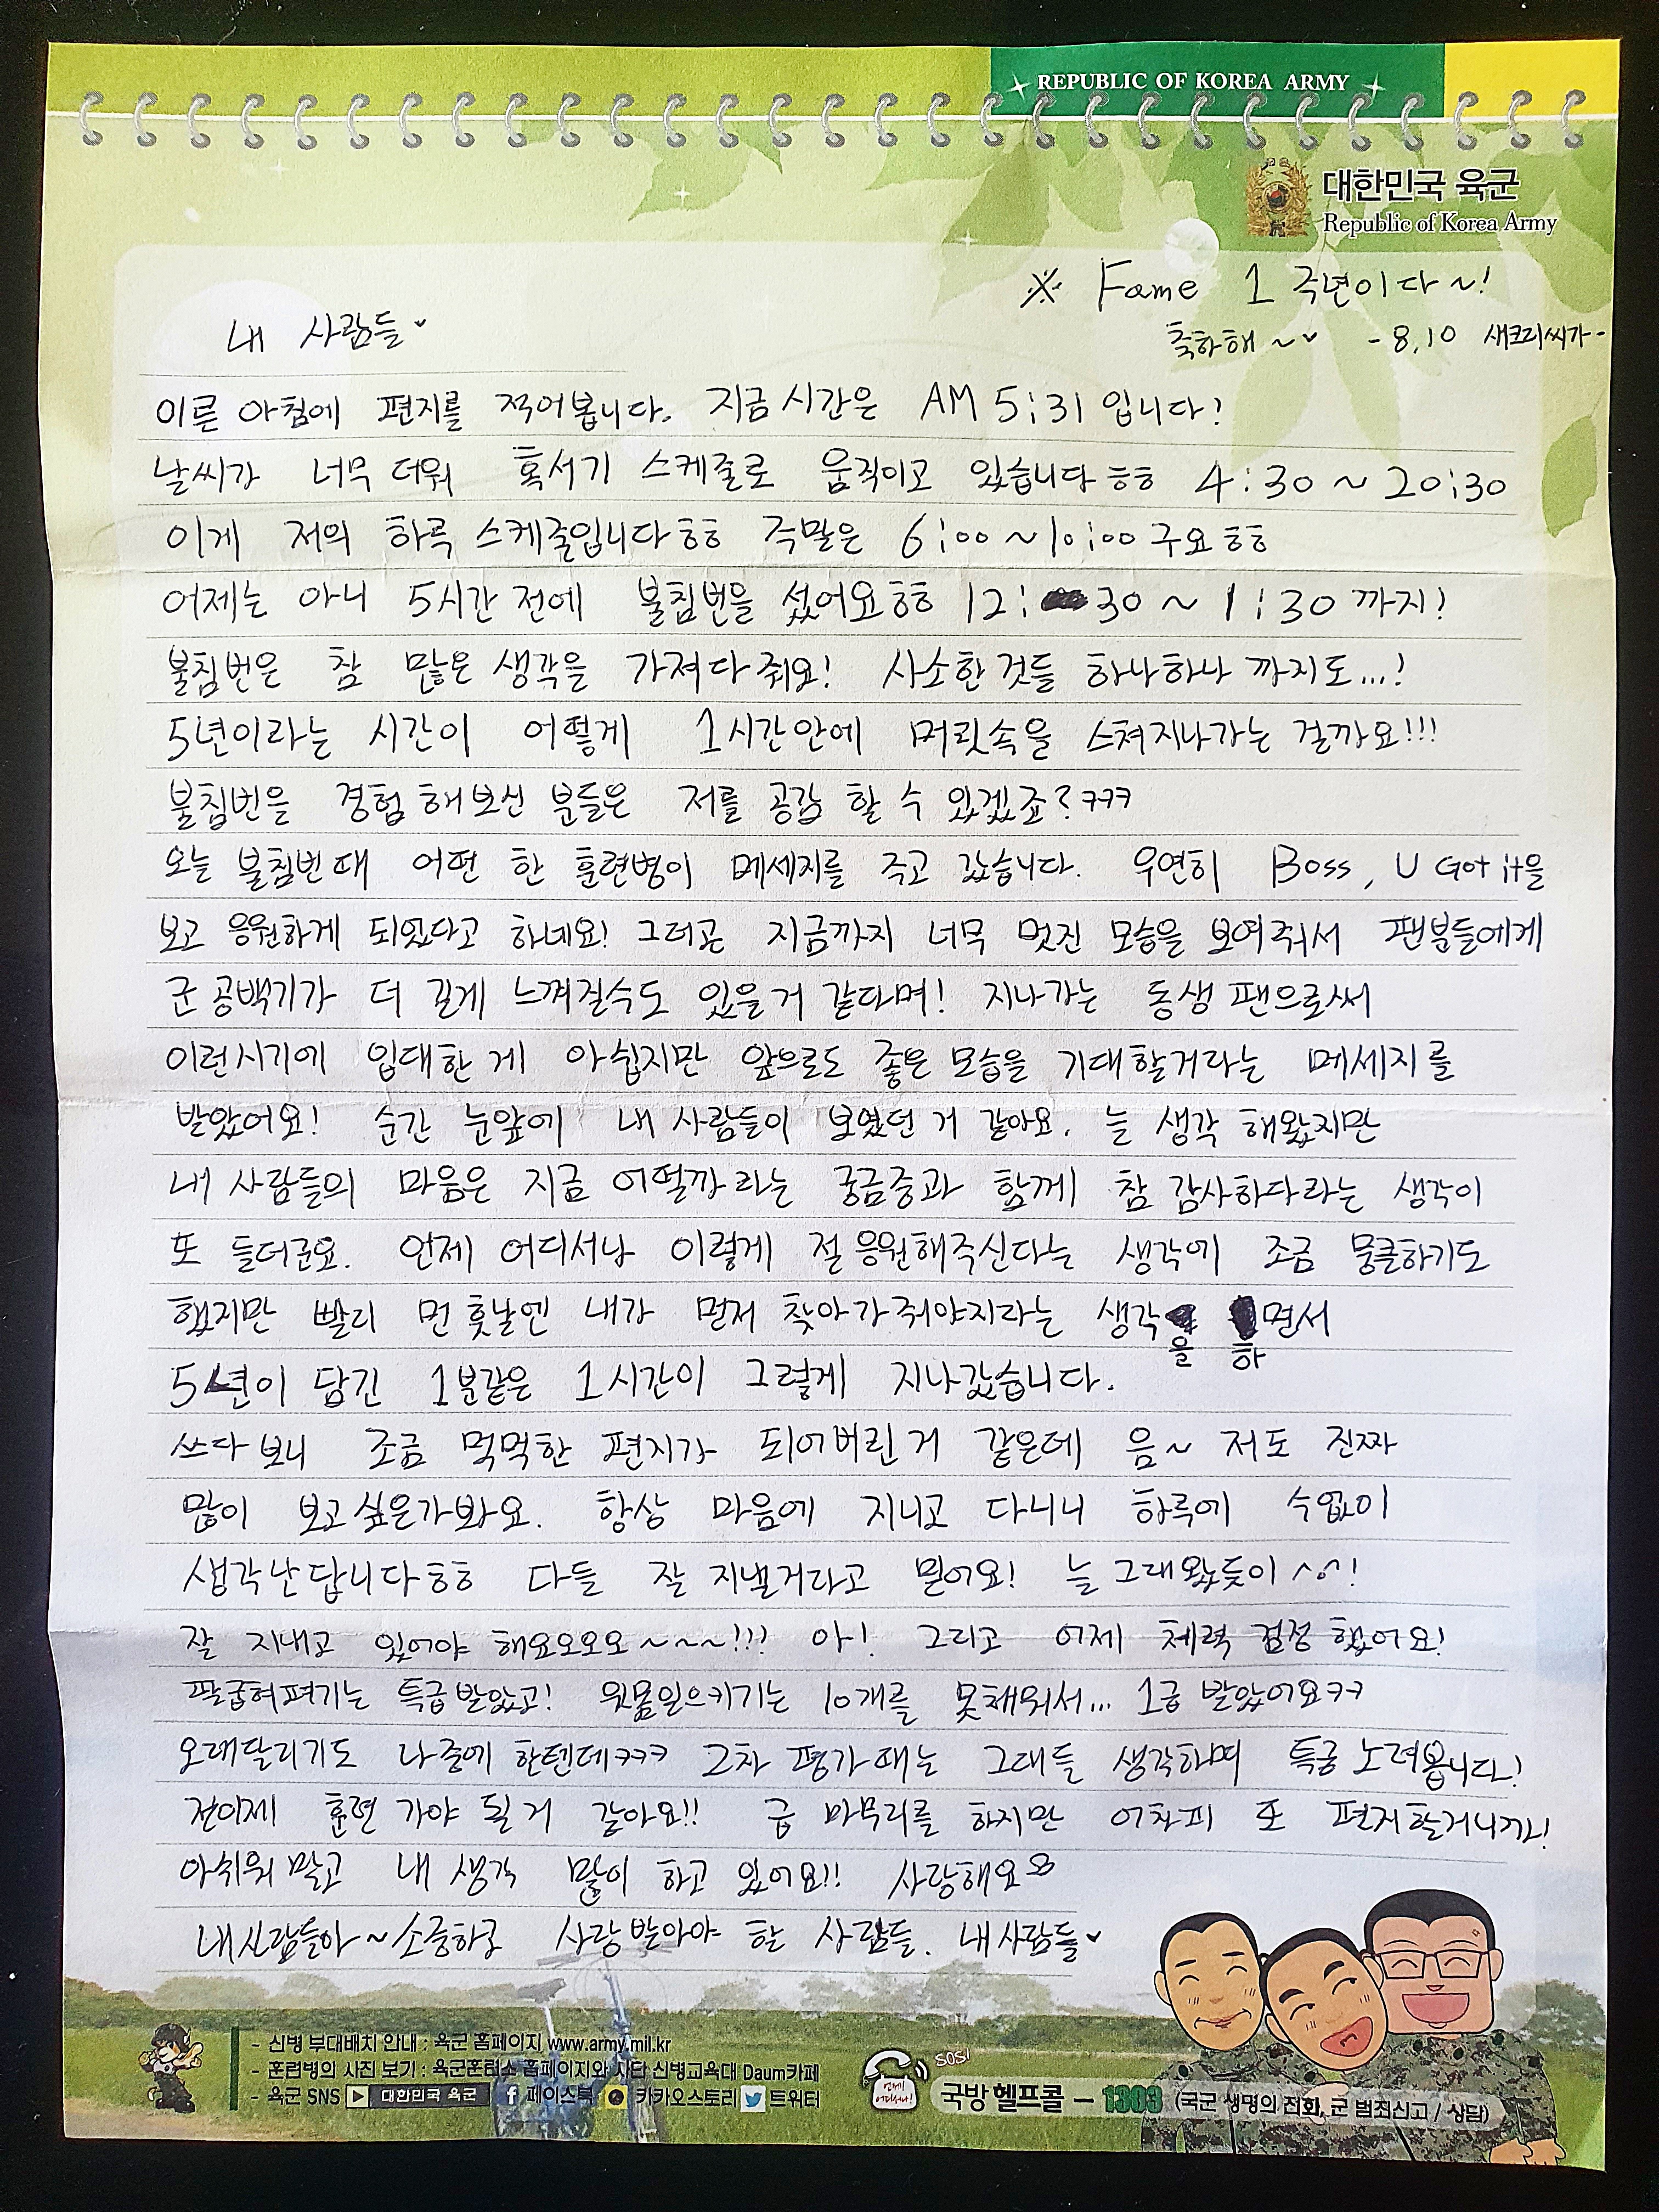 REPUBLIC OF KOREA ARMY
대한민국 육군
Republic of Korea Army
※ Fame 1 주년이다~!
축하해~♥ -8.10 새크리씨가-
내 사람들♥
이른 아침에 편지를 적어봅니다. 지금 시간은 AM 5:31 입니다!
날씨가 너무 더워 혹서기 스케줄로 움직이고 있습니다ㅎㅎ 4:30 ~ 20:30
이게 저의 하루 스케줄입니다ㅎㅎ 주말은 6:00 ~ 10:00 구요ㅎㅎ
어제는 아니 5시간 전에 불침번을 섰어요ㅎㅎ 12: 30 ~ 1:30 까지!
불침번은 참 많은 생각을 가져다줘요! 사소한 것들 하나하나 까지도...!
5년이라는 시간이 어떻게 1시간안에 머릿속을 스쳐지나가는 걸까요!!!
불침번을 경험해보신 분들은 저를 공감 할 수 있겠죠?ㅋㅋㅋ
오늘 불침번때 어떤 한 훈련병이 메세지를 주고 갔습니다. 우연히 Boss, U Got it을
보고 응원하게 되었다고 하네요! 그러곤 지금까지 너무 멋진 모습을 보여줘서 팬분들에게
군 공백기가 더 길게 느껴질수도 있을거 같다며! 지나가는 동생 팬으로써
이런시기에 입대한 게 아쉽지만 앞으로도 좋은 모습을 기대할거라는 메세지를
받았어요! 순간 눈앞에 내 사람들이 보였던 거 같아요. 늘 생각 해왔지만
내 사람들의 마음은 지금 어떨까 라는 궁금증과 함께 참 감사하다라는 생각이
또 들더군요. 언제 어디서나 이렇게 절 응원해주신다는 생각에 조금 뭉클하기도
했지만 빨리 먼 훗날엔 내가 먼저 찾아가줘야지라는 생각을 하면서
5년이 담긴 1분같은 1시간이 그렇게 지나갔습니다.
쓰다 보니 조금 먹먹한 편지가 되어버린 거 같은데 음~ 저도 진짜
많이 보고싶은가봐요. 항상 마음에 지니고 다니니 하루에 수없이
생각난답니다ㅎㅎ 다들 잘 지낼거라고 믿어요! 늘 그래왔듯이 ^o^!
잘 지내고 있어야 해요오오오~~~!!! 아! 그리고 어제 체력 검정 했어요!
팔굽혀펴기는 특급받았고! 윗몸일으키기는 10개를 못채워서... 1급 받았어요ㅋㅋ
오래달리기도 나중에 할텐데ㅋㅋㅋ 2차 평가때는 그대들 생각하며 특급 노려봅니다!
전이제 훈련 가야 될 거 같아요!! 급 마무리를 하지만 어차피 또 편지할거니까!
아쉬워 말고 내 생각 많이 하고 있어요!! 사랑해요
내사람들아~ 소중하고 사랑받아야 할 사람들. 내사람들♥
- 신병 부대배치 안내 : 육군 홈페이지 www.army.mil.kr
- 훈련병의 사진 보기 : 육군훈련소 홈페이지와 사단 신병교육대 Daum카페
- 육군 SNS 대한민국 육군 페이스북 카카오스토리 트위터
SOS!
언제! 어디서나!
국방헬프콜 - 1303 (국군 생명의 전화, 군 범죄신고 / 상담)